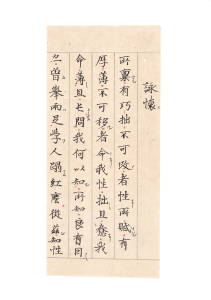 詠懷
所稟有巧拙不可改者性所賦有
厚薄不可移者命我性拙且惷我
命薄且屯問我何以知所知良有因
亦曾舉兩足學人蹋紅塵從茲知性